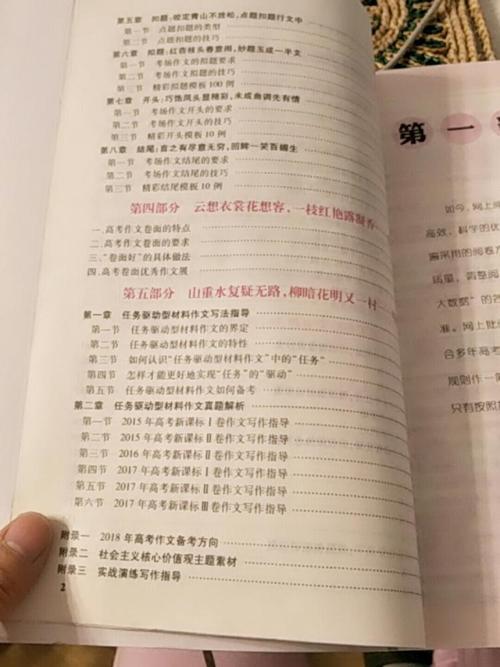 第五章 扣题:咬定青山不放松,点题扣题行文中
第一节 点题扣题的类型
第二节 点题扣题的技巧
第六章 拟题:红杏枝头春意闹,妙题玉成一半文
第一节 考场作文的拟题要求
第二节 考场作文拟题的技巧
第三节 精彩拟题模板 100 例
第七章 开头:巧饰凤头显精彩,未成曲调先有情
第一节 考场作文开头的要求
第二节 考场作文开头的技巧
第三节 精彩开头模板 10 例
第八章 结尾:言之有尽意无穷,回眸一笑百媚生
第一节 考场作文结尾的要求
第二节 考场作文结尾的技巧
第三节 精彩结尾模板 10 例
第四部分 云想衣裳花想容,一枝红艳露凝香
一.高考作文卷面的特点
二.高考作文卷面的要求
三.“卷面好”的具体做法
四.高考卷面优秀作文展
第五部分 山重水复疑无路,柳暗花明又一村
第一章 任务驱动型材料作文写法指导
第一节 任务驱动型材料作文的界定
第二节 任务驱动型材料作文的特性
第三节 如何认识“任务驱动型材料作文”中的“任务”
第四节 怎样才能更好地实现“任务”的“驱动”
第五节 任务驱动型材料作文如何备考
第二章 任务驱动型材料作文真题解析
第一节 2015 年高考新课标Ⅰ卷作文写作指导
第二节 2015 年高考新课标Ⅱ卷作文写作指导
第三节 2016 年高考新课标Ⅱ卷作文写作指导
第四节 2017 年高考新课标Ⅰ卷作文写作指导
第五节 2017 年高考新课标Ⅱ卷作文写作指导
第六节 2017 年高考新课标Ⅲ卷作文写作指导
附录一 2018 年高考作文备考方向
附录二 社会主义核心价值观主题素材
附录三 实战演练写作指导
2
第一
如今,网上阅
高效、科学的优
遍采用的阅卷方
质量,调整阅
大数据”的答
准。网上批
合多年高考
规则作一简
只有按照